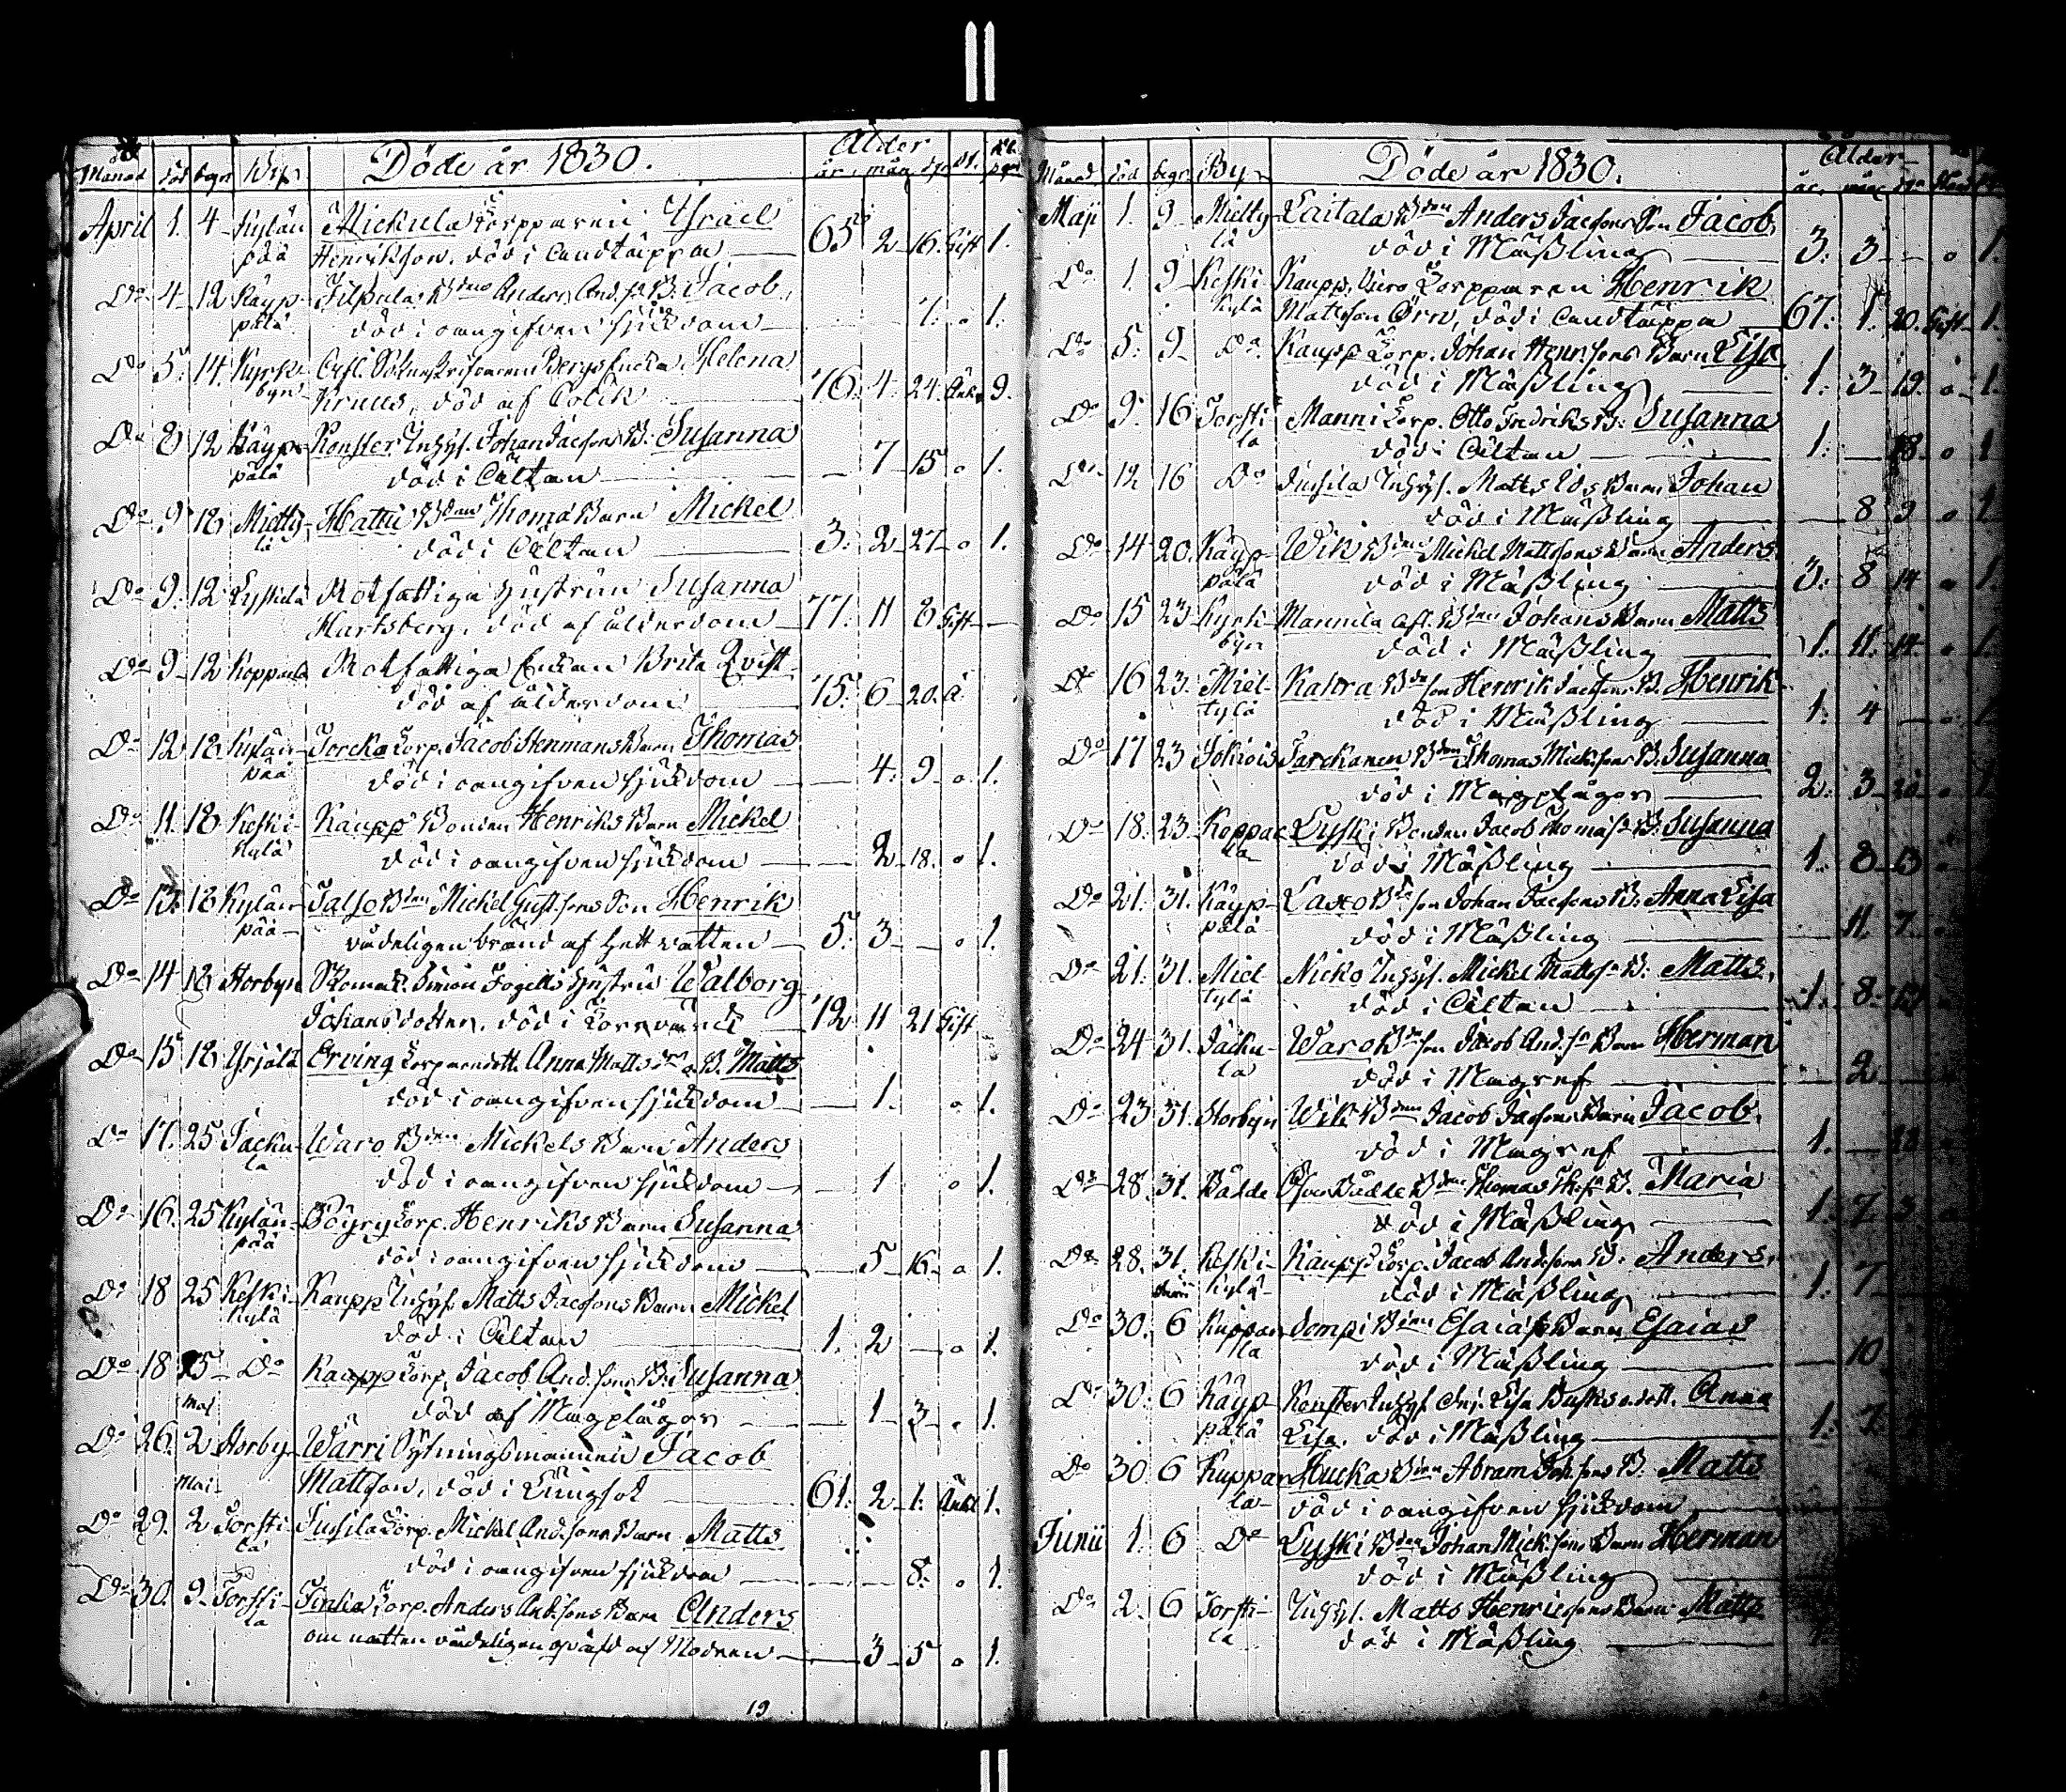 Döde år 1830.
Ålder
Månad död begr By år mån dgr
April 1. 4 Kylän Mickula Torpparen Ysrael
pää Henrikson, död i Andtäppa 65 2 16. Gift 1.
Do 4 12 Käyp- Filpula Bdens Anders And.s B. Jacob,
pälä död i oangifven sjukdom 7. o 1.
Do 5. 14. Kyrko- Afl. Bergs Enka Helena
byn Kruus, död af Colik 76. 4. 24. Enk. 9.
Do 8 12 Käyp- Konster Inhys. Johan Jacsons B. Susanna
pälä död i Ältan 7 15 o 1.
Do 9 18 Mietty- Hattu Bden Thomæ Barn Mickel
lä död i Ältan 3. 2 27 o 1.
Do 9. 12 Lyskilä Rotfattiga Hustrun Susanna
Hartsberg, död af ålderdom 77. 11 8 Gift
Do 9 12 Koppala Rotfattiga Enkan Brita Qvist
död af ålderdom 75. 6 20.
Do 12 18 Kylän- Torcko Torp. Jacob Stenmans Barn Thomas
pää död i oangifven sjukdom 4. 9 o 1.
Do 11. 18 Keski- Kaupp Bonden Henriks Barn Mickel
kylä död i oangifven sjukdom 2 18. o 1.
Do 13. 18 Kylän- Talso Bden Mickel Gust.sons Son Henrik
pää vådeligen bränd af hett vatten 5. 3 o 1.
Do 14 18 Storbyn Skomak. Simon Fogells Hustru Walborg
Johansdotter, död i 72 11 21 Gift
Do 15 18 Yrjälä Erving Torparedott. Anna Mattsdr o.ä. B. Matts
död i oangifven sjukdom 1. o 1.
Do 17. 25 Jacku- Waro Bden Mickels Barn Anders
la död i oangifven sjukdom 1 o 1.
Do 16. 25 Kylän- Pöyry Torp. Henriks Barn Susanna
pää död i oangifven sjukdom 5 16 o 1.
Do 18 25 Keski- Kaupp Inhys. Matts Jacsons Barn Mickel
kylä död i Ältan 1. 2 o 1.
Do 18 25 Do Kaupp Torp. Jacob And.sons B. Susanna
död af Magplågor 1 3 o 1.
Maj
Do 26. 2 Storby Warri Sytningsmannen Jacob
Mattson, död i Lungsot 61. 2 1. Enkl. 1.
Maij
Do 29. 2 Torsti- Jussila Torp. Mickel And.sons Barn Matts
la död i oangifven sjukdom 8. o 1.
Do 30. 9 Torsti- Torp. Anders And.sons Barn Anders
la om natten vådeligen qväfd af Modren 3 5 o 1.
19
Döde år 1830.
Ålder
Månad död begr By år mån
Maji 1. 9 Mietty- Laitala Bden Anders Jacsons Son Jacob,
lä död i Mäßling 3. 3 o 1.
Do 1. 9 Keski- Kaupp Torpparen Henrik
kylä Mattson Örn, död i Andtäppa 67. 1. 20. Gift 1.
Do 5. 9 Do Kaupp Torp. Johan Henr.sons Barn Lisa
död i Mäßling 1. 3 19. o 1.
Do 9. 16 Torsti- Manni Torp. Otto Fredriks B. Susanna
la död i Ältan 1. 18 o 1
Do 12 16 Do Jussila Inhys. Matts Barn Johan
död i Mäßling 8 9 o 1
Do 14 20. Käyp- Wik Bden Mickel Mattsons Barn Anders
pälä död i Mäßling 3. 8 14 o 1.
Do 15 23. Kyrk- Mannila Afl. Bden Johans Barn Matts
byn död i Mäßling 1. 11. 14 o 1.
Do 16 23. Miet- Katvra Bdeson Henrik Jacsons B. Henrik
tylä död i Mäßling 1. 4
Do 17 23 Jokiois Tarckanen Bden Thomas Mick.sons B. Susanna
död i Magplågor 2. 3 20 o 1.
Do 18. 23 Koppa- Lyski Bonden Jacob Thomæs. B. Susanna
la död i Mäßling 1. 8 13
Do 21. 31. Käyp- Laxo Bdeson Johan Jacsons B. Anna Lisa
pälä död i Mäßling 11. 7
Do 21. 31. Miet- Nicko Inhys. Mickel Matts.s B. Matts,
tylä död i Ältan 1. 8
Do 24 31. Jacku- Waro Bdeson Jacob And.s Barn Herman
la död i Magref 2
Do 23 31. Storbyn Wik Bden Jacob Jacsons Barn Jacob,
död i Magref 1.
Do 28. 31. Bädde Öfver Bädde Bden Thomas Th.s B. Maria
död i Mäßling 1. 7
Do 28. 31. Keski- Kaupp Torp. Jacob And.sons B. Anders,
kylä död i Mäßling 1. 7
Junii
Do 30. 6 Kuppar- Bden Esaiæ Barn Esaias
la död i Mäßling 10
Do 30. 6 Käyp- Konster Inhys. Enk. Lisa dott. Anna
pälä Lisa, död i Mäßling 1. 7
Do 30. 6 Kuppar- Hucka Bden Abram Joh.sons B. Matts
la död i oangifven sjukdom
Junii 1. 6 Do Lyski Bden Johan Mick.sons Barn Herman
död i Mäßling
Do 2. 6 Torsti- Inhys. Matts Henricsons Barn Matts
la död i Mäßling